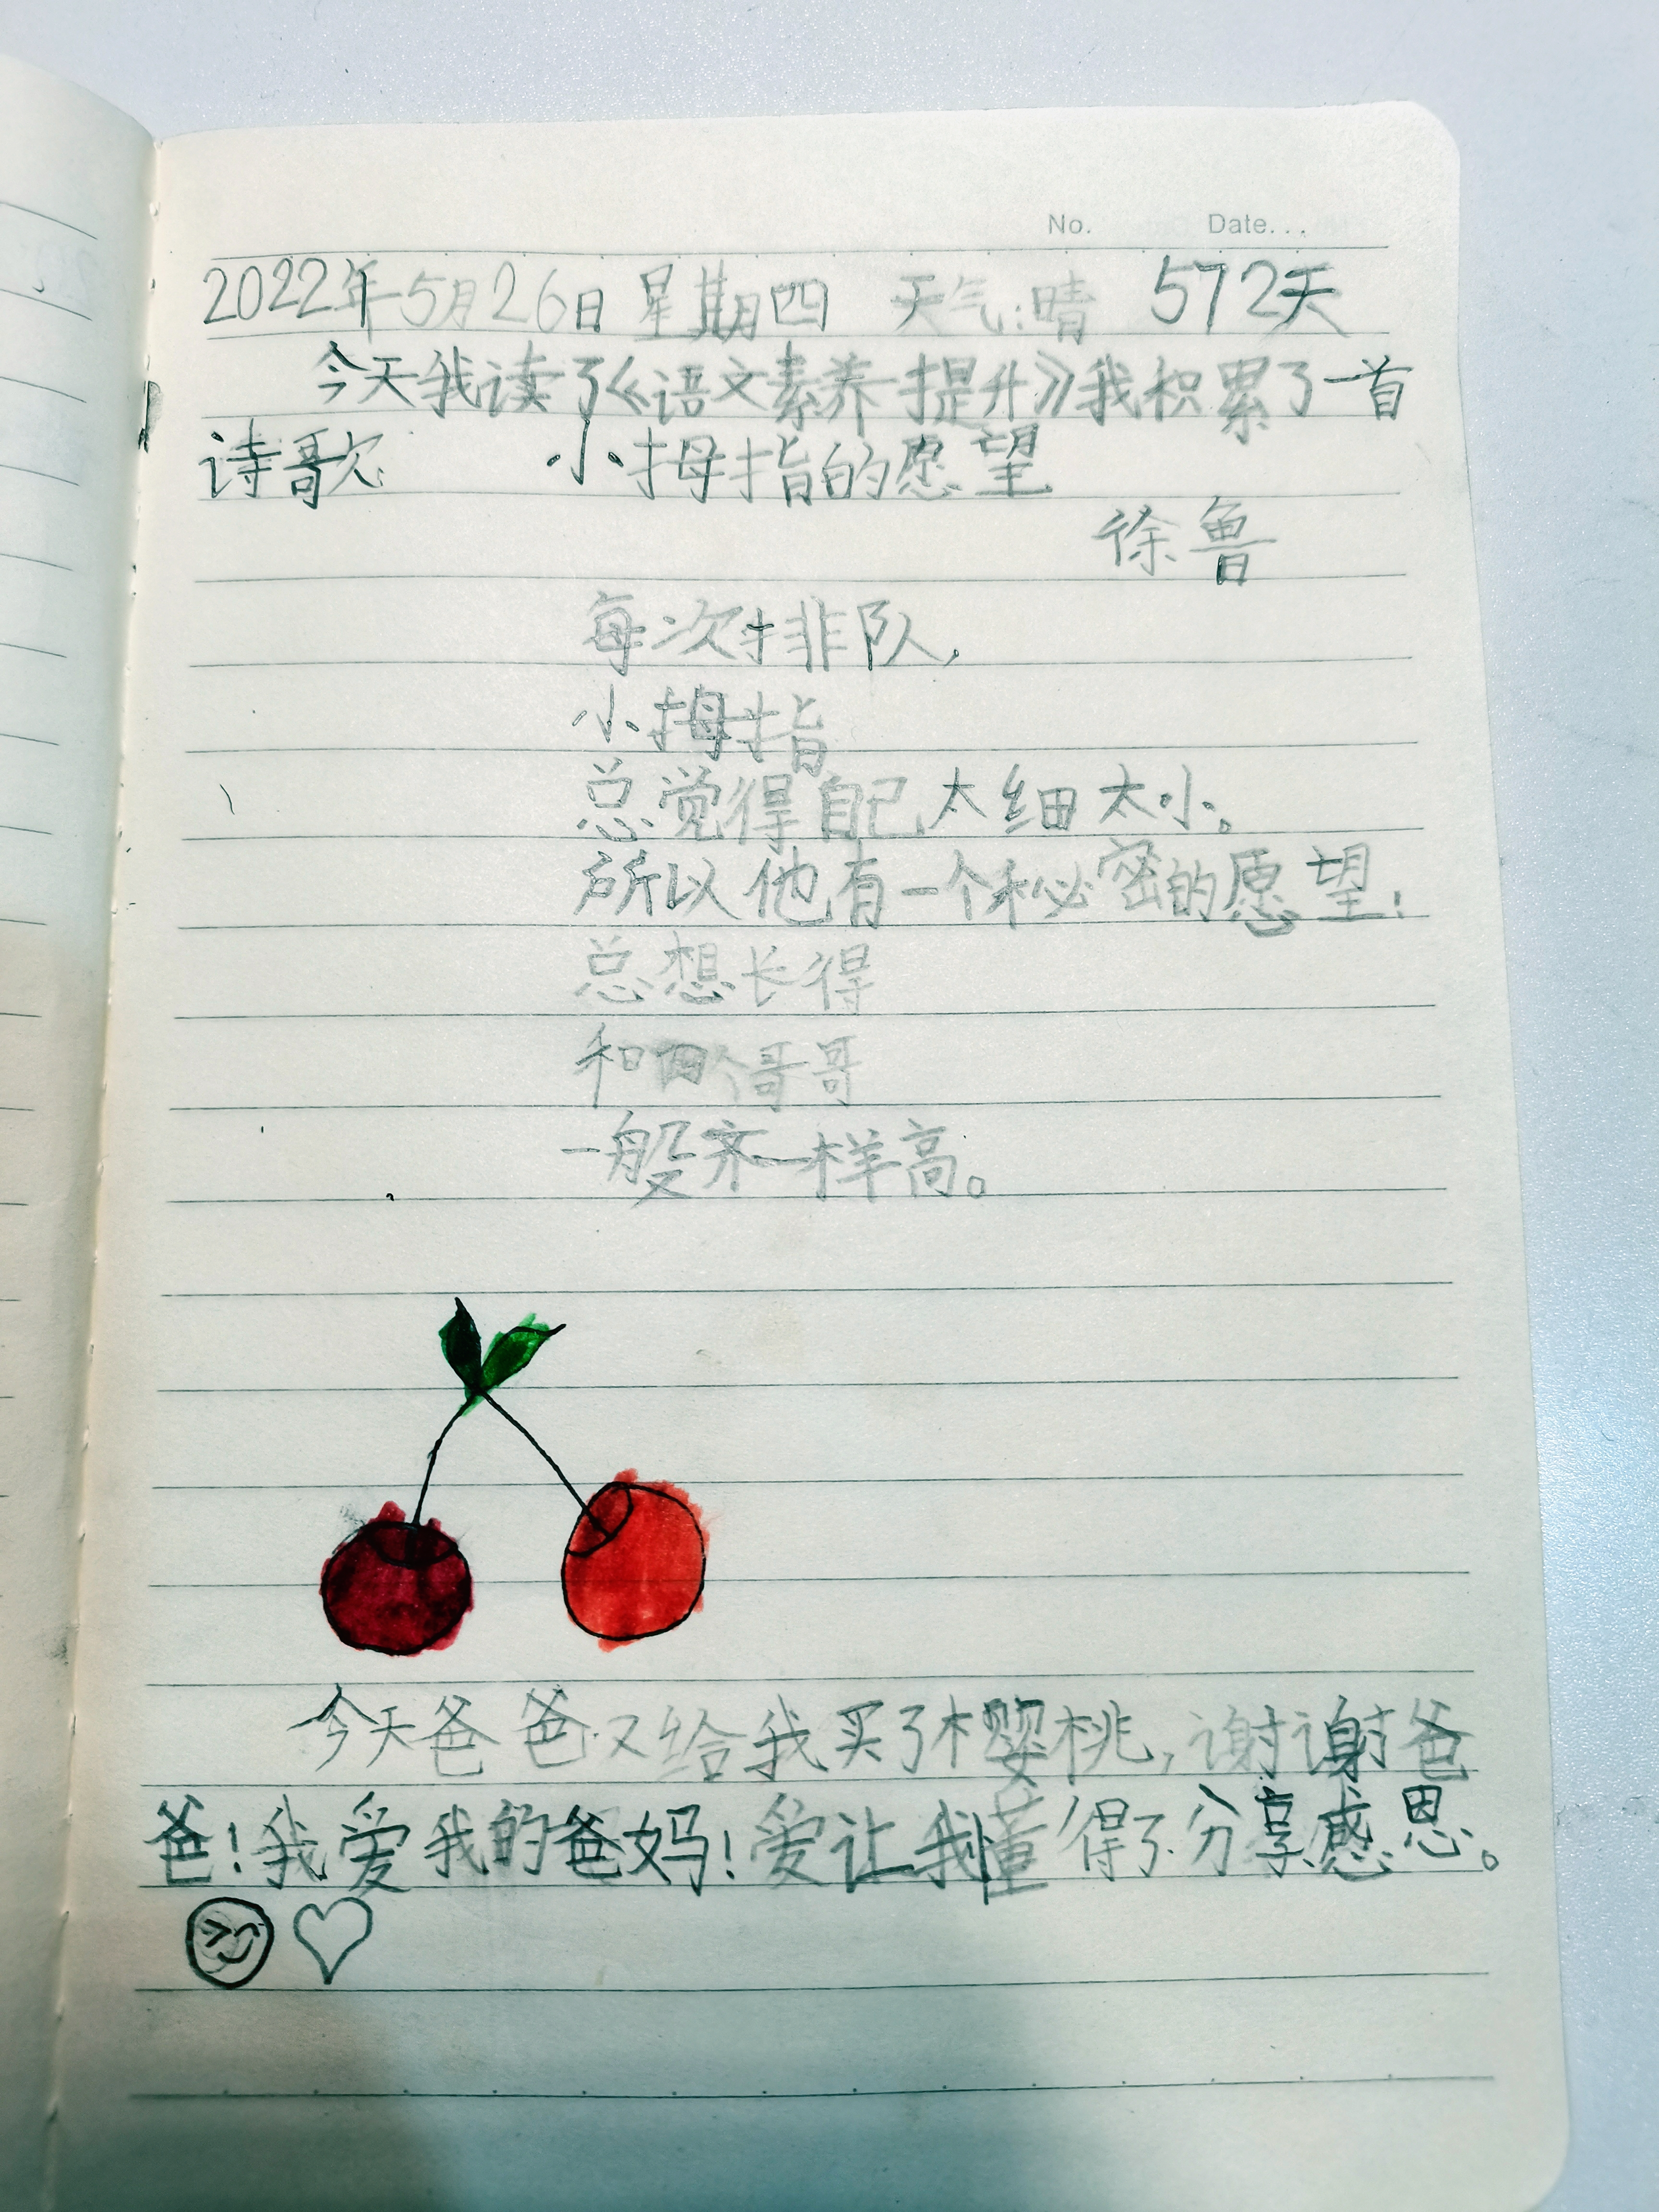 No. Date...
2022年5月26日 星期四 天气:晴 572天
今天我读了《语文素养提升》我积累了一首
诗歌 小拇指的愿望
徐鲁
每次排队,
小拇指
总觉得自己太细太小。
所以他有一个秘密的愿望:
总想长得
和四个哥哥
一般齐一样高。
今天爸爸又给我买了樱桃,谢谢爸
爸!我爱我的爸妈!爱让我懂得了分享感恩。